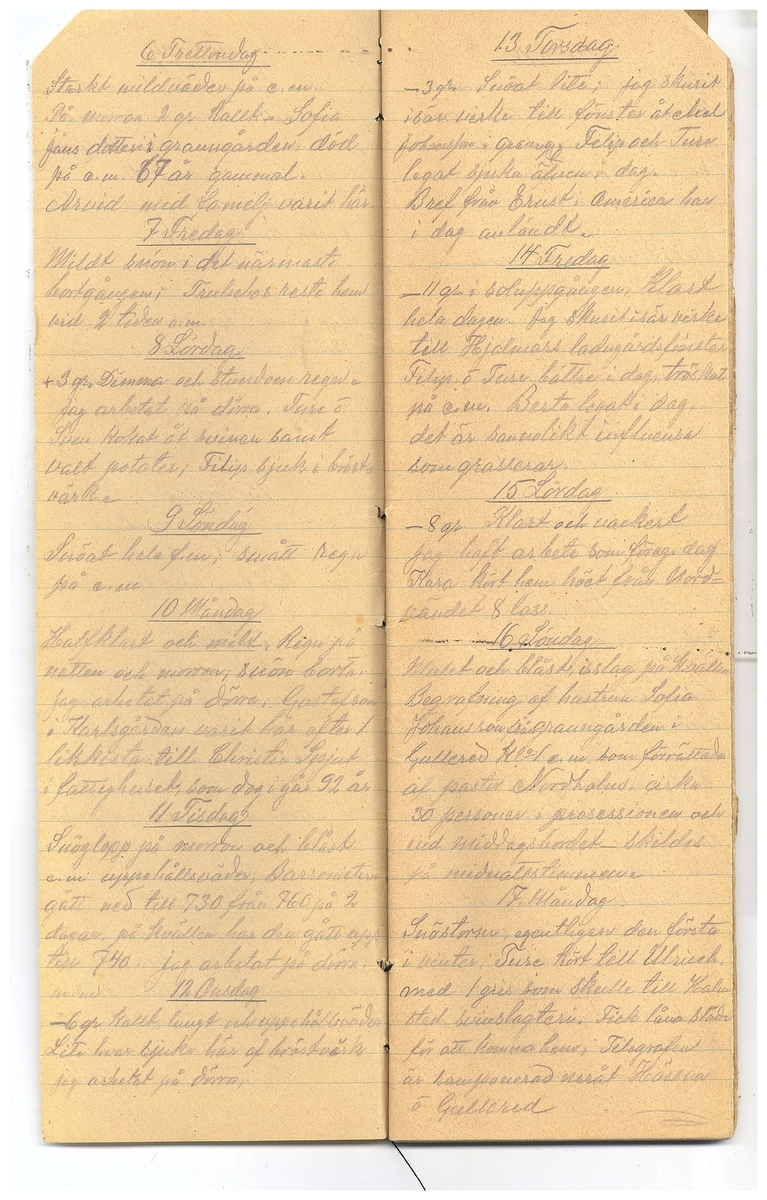 6 Trettondag
Starkt mildväder på e.m.
På morron 2 gr kallt – Sofia
jans dotter i graungården död
på e.m. 67 år gammal.
Arvid med familj varit här
7 Fredag
Mildt snön i det närmaste
bortgången; reste hem
vid 2 tiden e.m.
8 Lördag
+3 gr. Dimma och stundom regn
jag arbetat på dörra. Ture ö
Sven kokat åt svinen samt
valt potater, Filip sjuk i bröst-
värk
9 Söndag
Snöat hela f.m; smått regn
på e.m.
10 Måndag
Halfklart och mildt, Regn på
natten och morron, snön borta.
jag arbetat på dörra, Gustafson
i Karlsgården varit här efter 1
likkista till Christin
i fattighuset, som dog i går 92 år
11 Tisdag
Snöglopp på morron och blåst
e.m uppehållsväder, Barometern
gått ned till 730 från 760 på 2
dagar, på kvällen har den gått upp
till 740. jag arbetat på dörra.
12 Onsdag
–6 gr kallt, lungt och uppehållsväder
Lite hvar sjuka här af bröstvärk
jag arbetat på dörra,
13 Torsdag
–3 gr Snöat lite; jag skurit
isär virke till fönster åt
Johansson i graung, Filip och Ture
legat sjuka äfven i dag.
Bref från Ernst i America har
i dag anländt.
14 Fredag
–11 gr i soluppgången, Klart
hela dagen. jag skurit isär virke
till Hjalmars ladugårdsfönster
Filip ö Ture bättre i dag, tröskat
på e.m. Berta legat i dag,
det är sannolikt influensa
som grasserar.
15 Lördag
–8 gr Klart och vackert
jag haft arbete som föreg. dag
Kara kört hem höet från Nord-
vändet 8 lass.
16 Söndag
Mulet och blåst, isslag på kväll
Begrafning af hustrun Sofia
Johansson från graungården i
Gullered kl 1 e.m. som förrättades
af pastor Nordholm, cirka
30 personer i prosessionen och
vid middagsbordet – skildes
på midnattstimmen
17. Måndag
Snöstorm, egentligen den första
i vinter, Ture kört till Ulriceh.
med 1 gris som skulle till Halm
stad svinslagteri. Fick låna släde
för att komma hem; Telegrafen
är ramponerad neråt Hösena
ö Gullered